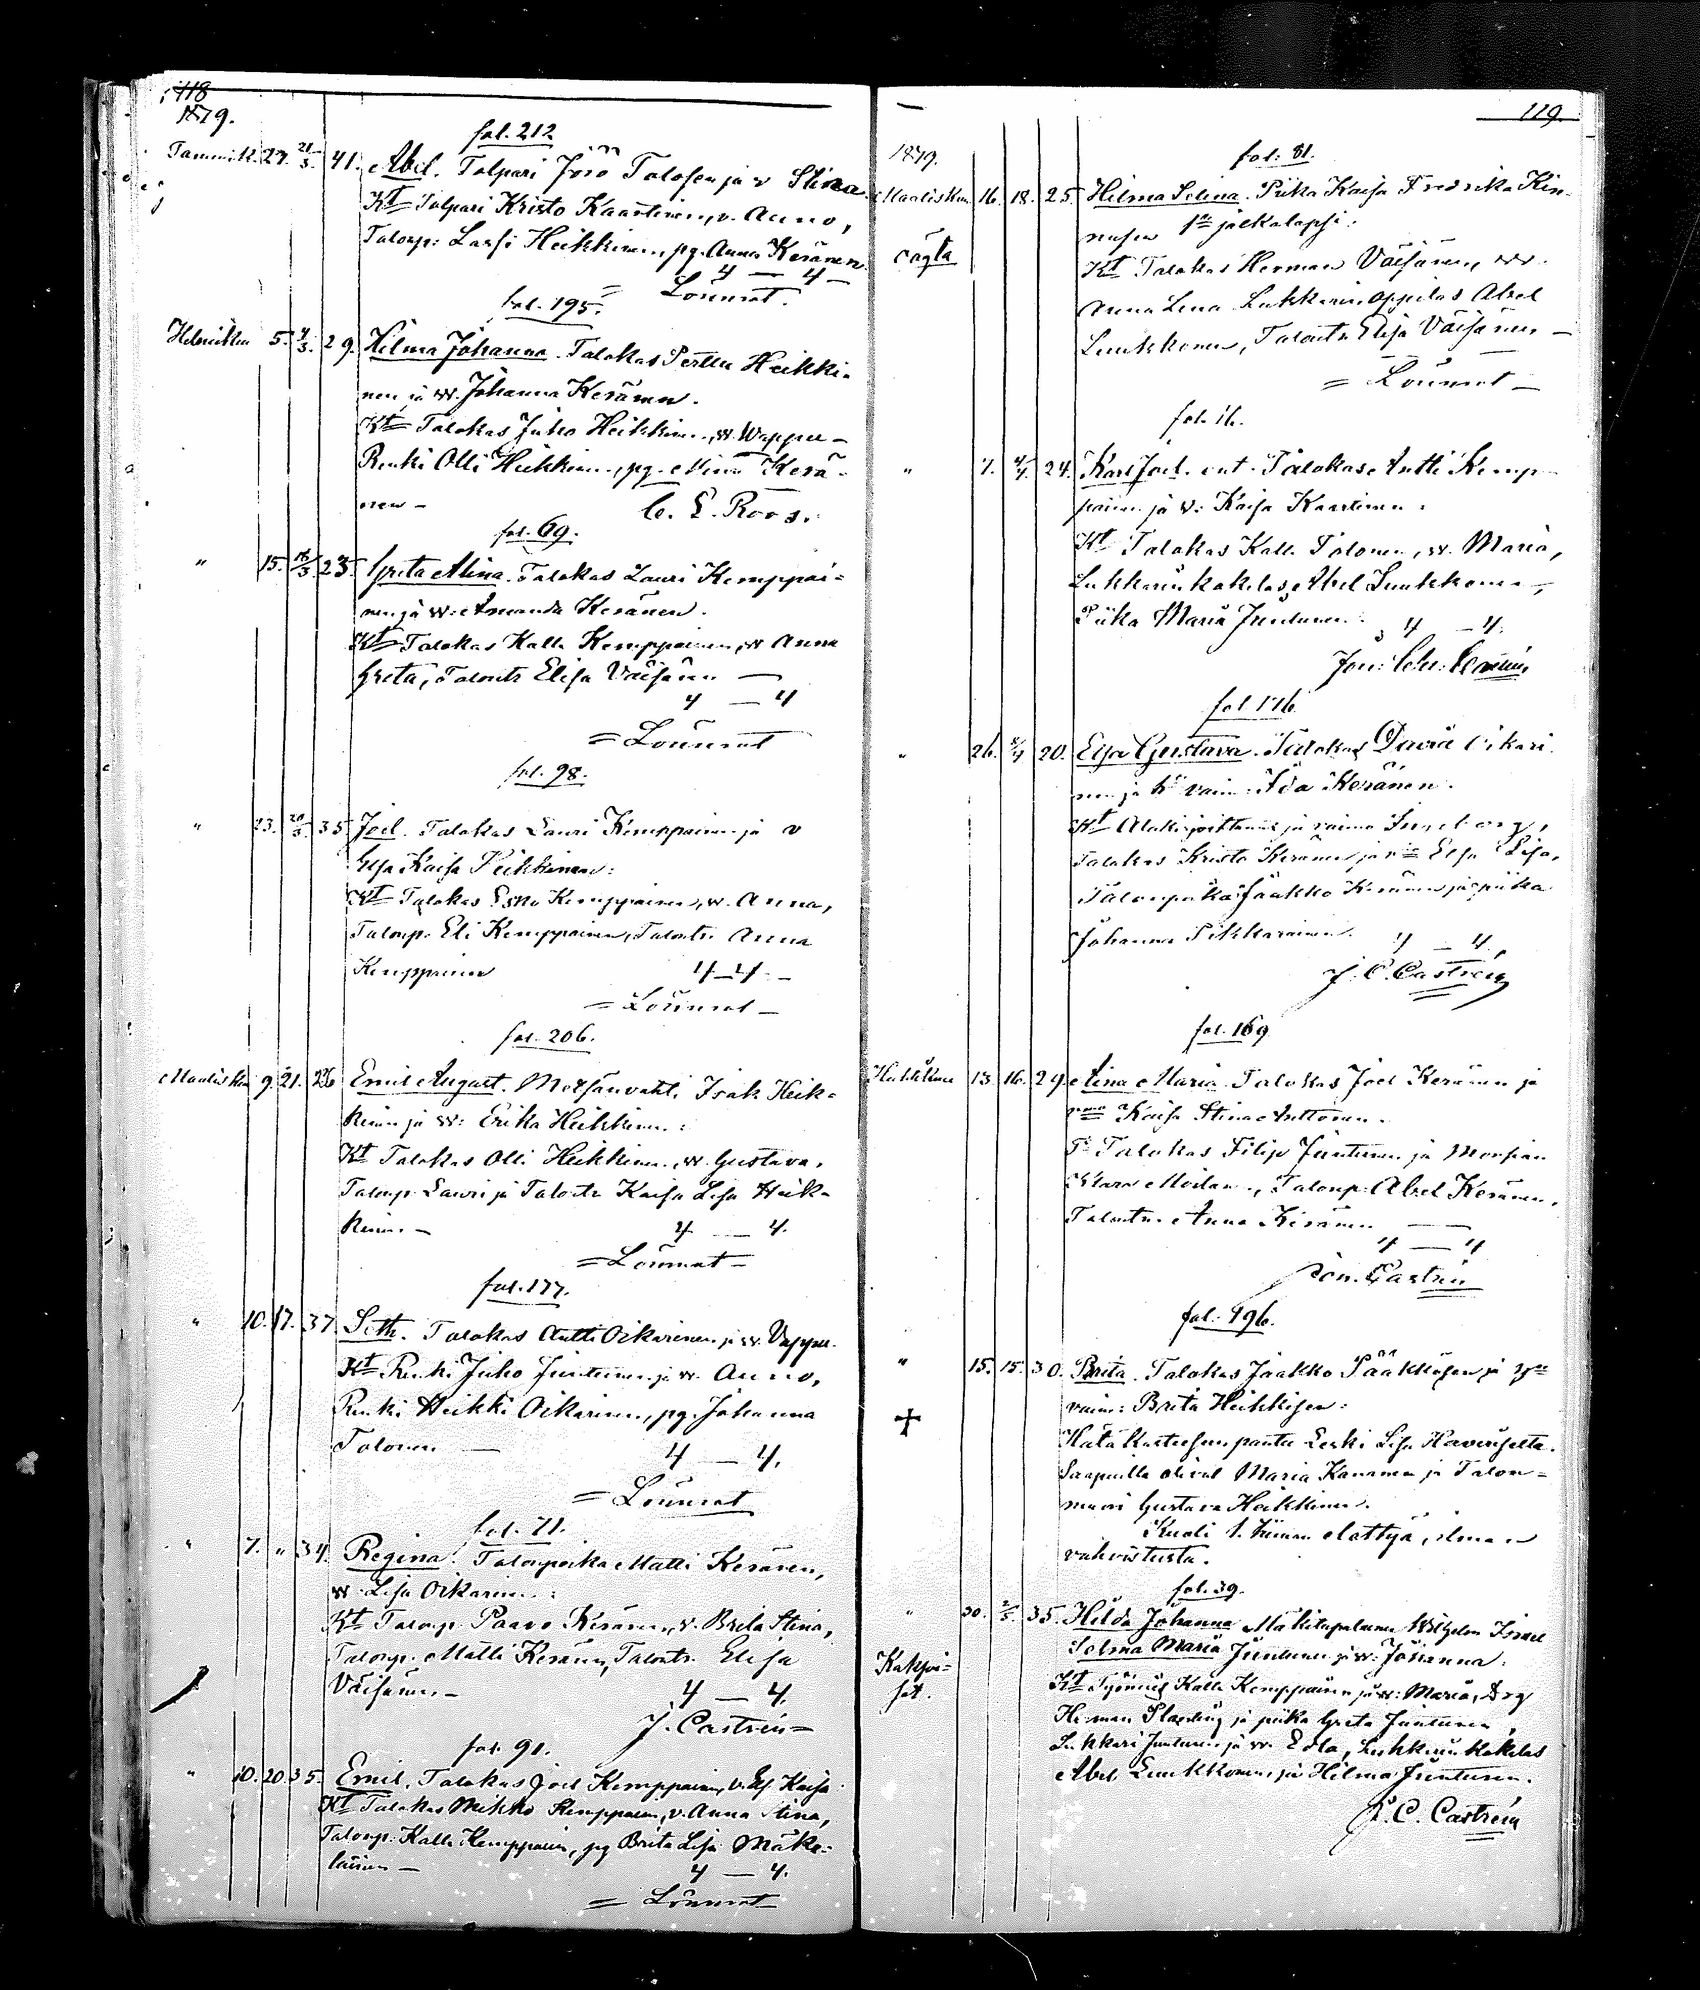 118
1879.
fol. 212
Tammik. 27. 21/3 41. Abel. Talpari Jrö Talosen ja v Stina
Kt Talpari Kristo Kaartinen, v. Anno,
Talonp: Lassi Heikkinen, pg. Anna Keränen
4 — 4 —
= Lönnrot.
fol. 195.
Helmikuu 5. 4/3. 29. Hilma Johanna. Talokas Perttu Heikki-
nen ja w. Johanna Keränen.
Kt Talokas Juho Heikkinen, w. Wappu —
Renki Olli Heikkinen, pg. Miina Kerä-
nen —
C. E. Roos.
fol. 69.
" 15. 16/3 23. Greta Alina. Talokas Lauri Kemppai-
nen ja w: Amanda Keränen.
Kt Talokas Kalle Kemppainen, w Anna
Greta, Talontr Elisa Väisänen —
4 — 4
= Lönnrot
fol. 98.
" 23. 20/3 35 Joel. Talokas Lauri Kemppainen ja v
Elsa Kaisa Heikkinen:
Kt Talokas Esko Kemppainen, w. Anna,
Talonp. Eli Kemppainen, Talontr. Anna
Kemppainen 4 — 4 —
= Lönnrot —
fol. 206.
Maaliskuu 9. 21. 26 Emil August. Metsänvahti Isak Heik-
kinen ja w: Erika Heikkinen:
Kt Talokas Olli Heikkinen, w. Gustava,
Talonp. Lauri ja Talontr Kaisa Lisa Heik-
kinen. — 4 — 4.
= Lönnrot —
fol. 177.
" 10. 17. 37 Seth. Talokas Antti Oikarinen ja w. Vappu.
Kt Renki Juho Juntunen ja w. Anno,
Renki Heikki Oikarinen, pg. Johanna
Talonen — 4 — 4.
= Lönnrot
fol. 71.
" 7. " 34. Regina. Talonpoika Matti Keränen,
w. Lisa Oikarinen:
Kt Talonp. Paavo Keränen, v. Brita Stina,
Talonp. Matti Keränen, Talontr. Elisa
Väisänen. — 4 — 4.
J. Castrén =
fol. 91.
" 10. 20. 35. Emil. Talokas Joel Kemppainen, v. Els. Kaisa
Kt Talokas Mikko Kemppainen, v. Anna Stina,
Talonp. Kalle Kemppainen, pg Brita Lisa Mäke-
läinen — 4 — 4.
= Lönnrot
119.
1879.
fol: 81.
Maaliskuu 16. 18. 25. Hilma Selina. Piika Kaisa Fredrika Kin-
nusen jälkalapsi.
oägta
Kt Talokas Herman Väisänen, w.
Anna Lena Lukkarin oppilas Abel
Luukkonen, Talontr Elisa Väisänen —
= Lönnrot —
fol. 16.
" 7. 4/4. 24. Karl Joel. ent. Talokas Antti Kemp-
painen ja v: Kaisa Kaartinen:
Kt Talokas Kalle Talonen, w. Maria,
Lukkarin kokelas Abel Luukkonen,
Piika Maria Juntunen. 4 — 4.
fol 176.
" 26. 20. Elsa Gustava. Talokas David Oikari-
nen ja vaim. Ida Keränen.
Kt ja vaimo
Talokas Kristo Keränen ja Elsa Lisa,
Talonpoika Jaakko Keränen ja piika
Johanna Pikkarainen. 4 — 4.
J. C. Castrén
fol. 169
Huhtikuu 13. 16. 29. Aina Maria. Talokas Joel Keränen ja
Kaisa Stina Anttonen.
Talokas Filip Juntunen ja
Klara Moilanen, Talonp. Abel Keränen,
Talontr. Anna Keränen —
4 — 4
Jon. Castrén
fol. 196.
" 15. 15. 30. Brita. Talokas Jaakko Pääkkösen ja
vaim: Brita Heikkisen:
✝ Hätäkasteesen pantu Leski Lisa
Saapuilla olivat Maria Kananen ja Talon-
muori Gustava Heikkinen.
Kuoli 1. tiiman elättyä, ilman
vahvistusta.
fol. 39.
" 30. 2/5. 35. Hilda Johanna Mäkitupalainen Wilhelm Israel
Selma Maria Juntunen ja w. Johanna.
Kaksoi-
set.
Kt Työmies Kalle Kemppainen ja w. Maria, Drg
Herman ja piika Greta Juntunen,
Lukkari Juntunen ja w. Edla, Lukkarin kokelas
Abel Luukkonen ja Hilma Juntunen.
J. C. Castrén